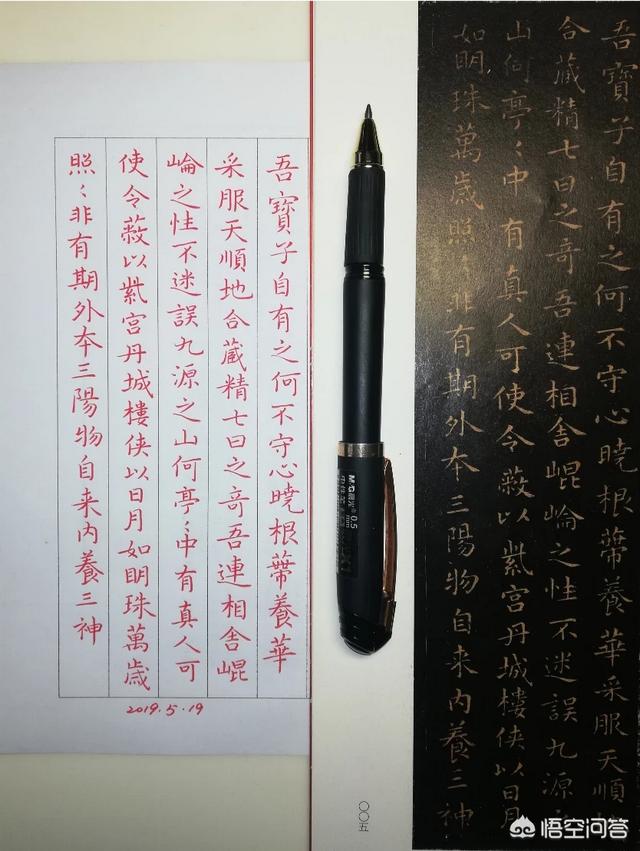 吾寶子自有之何不守心曉根蒂養華
采服天順地合藏精七日之奇吾連相舍崐
崘之性不迷誤九源之山何亭〻中有真人可
使令蔽以紫宮丹城樓俠以日月如明珠萬歲
照〻非有期外本三陽物自来內養三神
2019.5.19
M&G晨光® 0.5
mm
吾寶子自有之何不守心曉根蒂養華采服天順
合藏精七日之奇吾連相舍崐崘之性不迷誤九源
山何亭〻中有真人可使令蔽以紫宮丹城樓俠以日月
如明珠萬歲照〻非有期外本三陽物自来內養三神
〇〇五
悟空问答